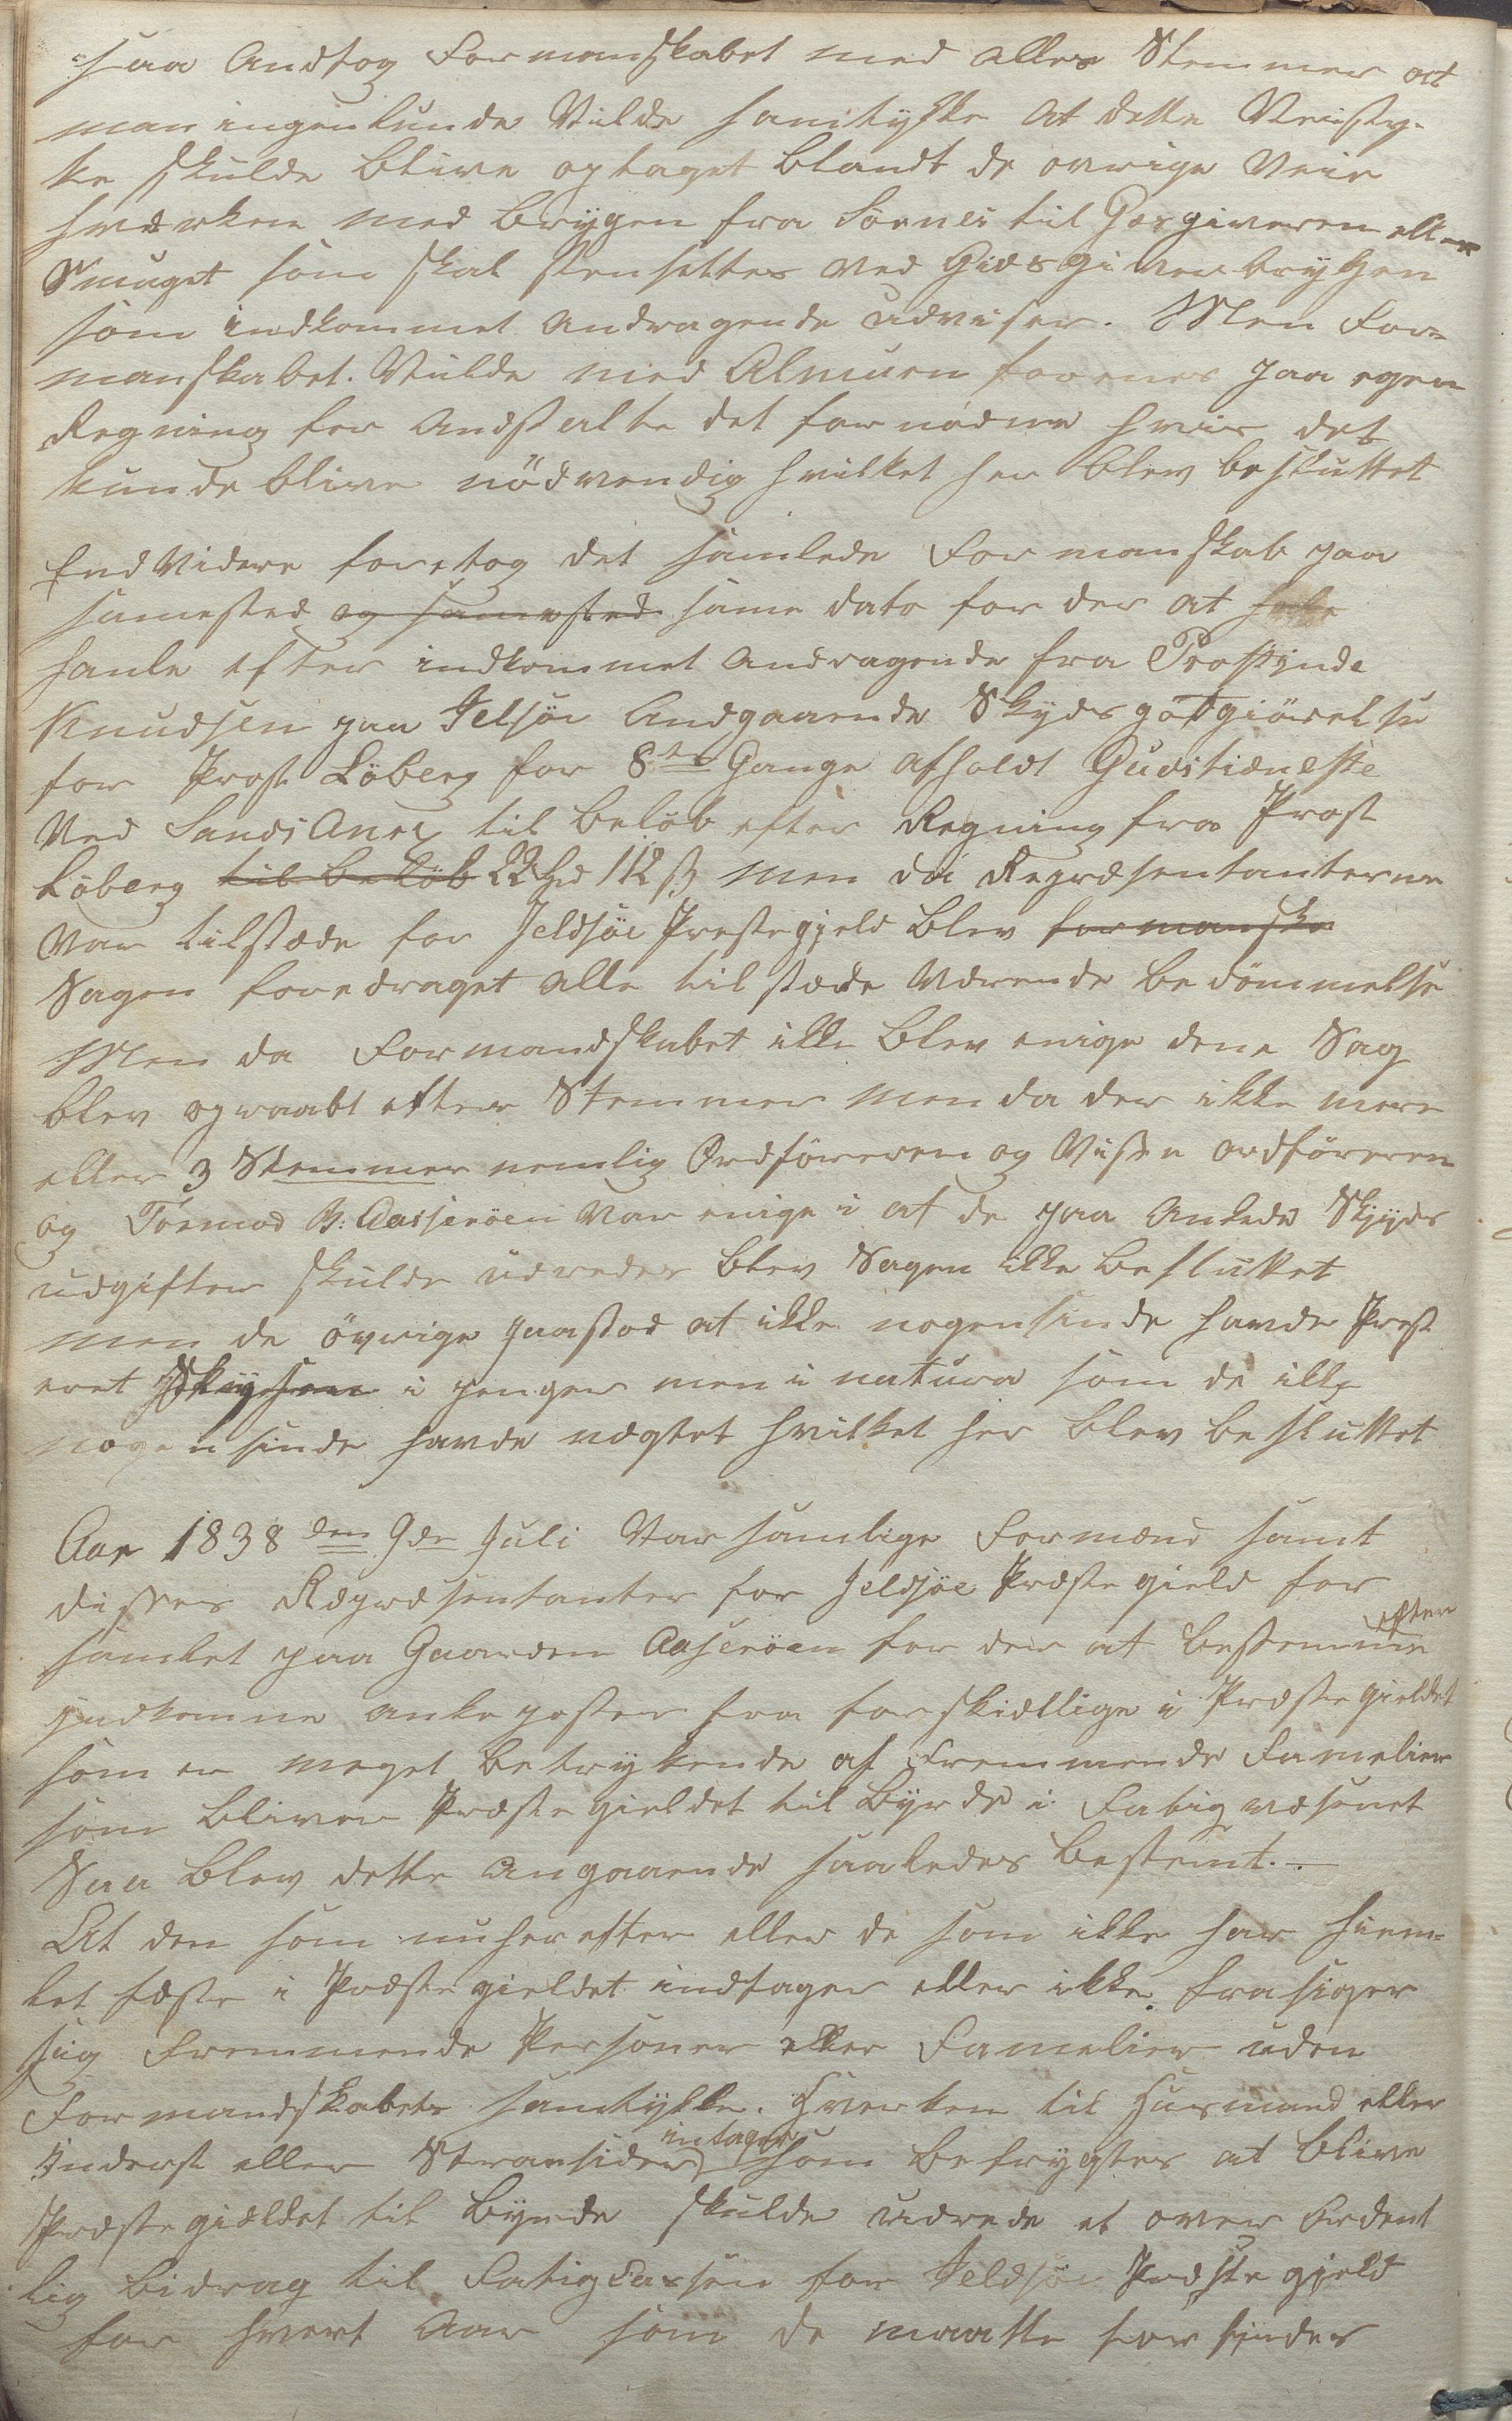 saa Andtog Formanskabet med alles Stemmer at
man ingenlunde Vilde samtykke At dette Veisty-
ke skulde blive optaget blandt de ovrige Veie
hverken med Brygen fra Sovnes til Gæsgiveren eller
Smuget som skal stensettes ved Giæsgiverbrygen
som indkommet Andragende udviser. Men For-
manskabet. Vilde med Almuen forenes paa egen
Regning for Andstalte det fornødne hvis det
kunde blive nödvendig hvilket her blev besluttet
End Videre foretog det samlede Formanskab paa
samested og samested same dato for der at
hanle efter indkommet Andragende fra Provstinde
Knudsen paa Jelsöe Andgaaende Skyds gotgiörelse
for Prost Löberg for 8te Gange afholdt Gudstieneste
Ved Sands Anex til beløb efter Regning fra Prost
Löberg til beløb 22 Spd 112 ß men da Repræsentanterne
var tilstæde for Jeldsöe Prestegjeld blev formanska
Sagen foredraget alle tilstæde Værende bedömmelse
Men da Formandskabet ikke blev enige dene Sag
blev opraabt efter Stemmer men da der ikke mere
eller 3 Stemmer nemlig Ordföreren og Visse ordföreren
og Tormod N: Aasseröen var enige i at de paa Ankede Skyds
udgifter skulde udredes blev Sagen ikke besluttet
men de övrige paastod at ikke nogensinde havde Prest
eret Skydsen i penger men i natura som de ikke
nogensinde havde nægtet hvilket her blev besluttet
Aar 1838 den 9de Juli Var samlige Formænd samt
disses Repræsentanter for Jeldsöe Præstegield for
samlet paa Gaarden Aaseröen for der at bestemme efter
indkomne ankeposter fra forskiellige i Præstegieldet
som er meget betrykende af Fremmende Famelier
som bliver Præstegieldet til Byrde i Fatigvæsenet
Saa blev dette Angaaende saaledes bestemt.
At den som nu herefter eller de som ikke har hiem-
let fæste i Præstegieldet indtager eller ikke frasiger
sig Fremmende Personer eller Famelier uden
Formandskabets samtykke. Hverken til Husmand eller
Inderst eller Stransider intager som befrygtes at blive
Præstegieldet til Byrde skulde udrede et over Ordent
lig bidrag til Fatigcassen for Jeldsöe Præstegjeld
for hvert Aar som de maatte for findes